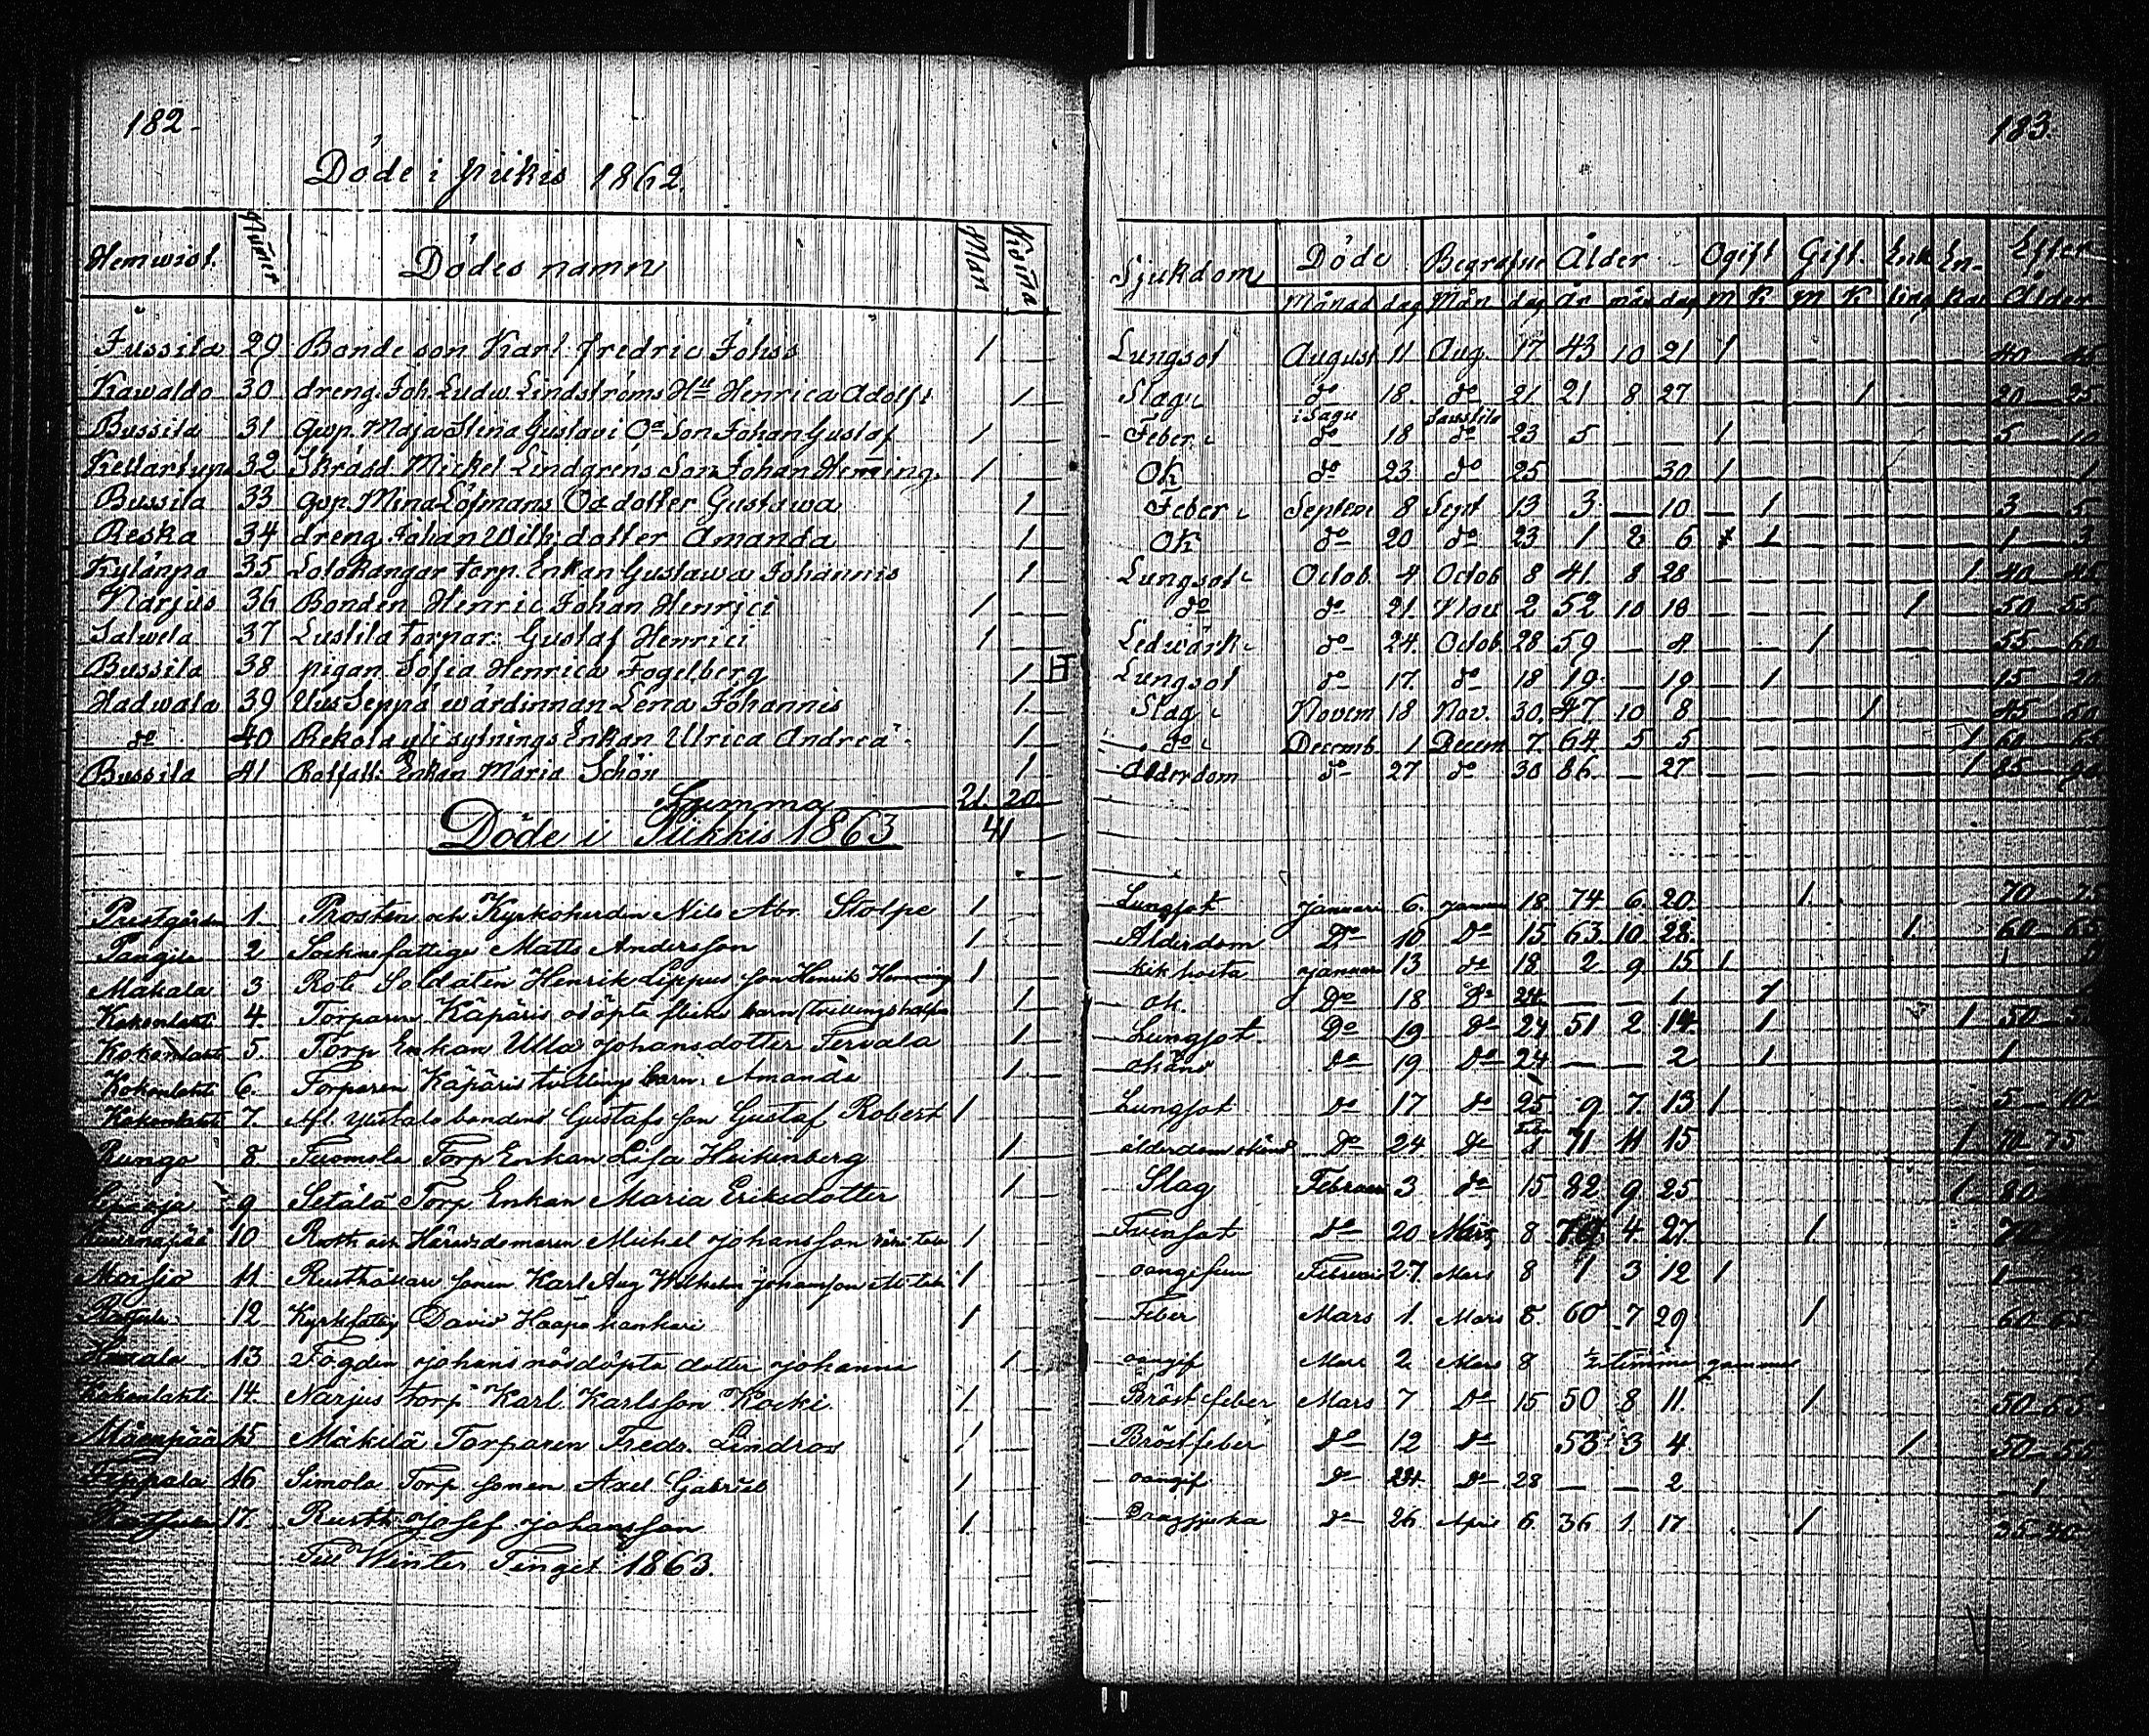 182.
Döde i pikis 1862.
Hemwist. Numer Dödes namn Man Kvinna
Jussila 29 Bonde son Karl fredric Johss 1
Kawaldo 30 dreng. Joh. Ludw. Lindströms Hu Henrica Adolfs 1
Bussila 31 qvp. Maja Stina Gustavi Oa Son Johan Gustaf 1
32 Skrädd. Mickel Lindgrens Son Johan Heming. 1
Bussila 33 qvp. Mina Löfmans Oa dotter Gustawa 1
Reska 34 dreng. Johan Wilh: dotter Amanda 1
Kylänpä 35 torp. Enkan Gustawa Johannis 1
Narjus 36 Bonden Henric Johan Henrici 1
Salwela 37 Lustila torpar: Gustaf Henrici 1
Bussila 38 pigan Sofia Henrica Fogelberg 1
Hadwala 39 Uus Seppä wärdinnan Lena Johannis 1
do 40 Rekola yli sytnings Enkan Ulrica Andreæ 1
Bussila 41 Rotfatt: Enkan Maria Schön 1
Summa 21. 20.
41
Döde i Piikkis 1863
Prestgården 1. Prosten och Kyrkoherden Nils Abr. Stolpe 1
2 Socknefattige Matts Andersson 1
Makala 3. Rote Soldaten Henrik Lippus son Henrik Hemming 1
Kokonlahti 4. Torparen Käpäris odöpta flicke barn 1
Kokonlahti 5. Torp Enkan Ulla Johansdotter Tervala 1
Kokonlahti 6. Torparen Käpäris tvillings barn: Amanda 1
Kokonlahti 7. Afl. bondens Gustafs son Gustaf Robert 1
Rungo 8. Tuomola Torp Enkan Lisa Heikenberg 1
9 Setälä Torp Enkan Maria Eriksdotter 1
10 Rusth och Häradsdomaren Michel Johansson 1
Moisio 11. Rusthållare sonen Karl Aug Wilhelm Johansson 1
12 Kyrkfattig David Haapakankari 1
13 Fogden Johans nöddöpta dotter Johanna 1
Kokonlahti 14. Narjus torp Karl Karlsson Kocki 1.
15 Mäkilä Torparen Fredr. Lindros 1
16 Simola Torp sonen Axel Gabriel 1
17. Rusth: Josef Johansson 1
Till Winter Tinget 1863.
183.
Sjukdom Döde Begrafne Ålder Ogift Gift. Enk En- Efter
Månad dag Mån dag År mån dag M K M K ling kor Ålder
Lungsot August 11 Aug. 17 43 10 21 1 40 45
Slag do 18 do 21 21 8 27 1 20 25
i Sagu
Feber do 18 do 23 5 1 5 10
OK do 23 do 25 30 1 1
Feber Septem 8 Sept 13 3 10 1 3 5
OK do 20 do 23 1 2 6 1 1 3
Lungsot Octob. 4 Octob 8 41. 8 28 1 40 45
do do 21. Nov 2 52 10 18 1 50 55
Ledwärk do 24. Octob. 28 59 8 1 55 60
Lungsot do 17. do 18 19. 19 1 15 20
Slag Novem 18 Nov. 30. 47 10 8 1 45 50
do Decemb. 1 Decem 7 64 5 5 1 60 65
Ålderdom do 27 do 30 86 27 1 85 90
Lungsot Januari 6. Januari 18 74 6. 20. 1. 70 75
Ålderdom Do 10 Do 15 63. 10. 28. 1. 60 65
kikhosta Januari 13 do 18 2 9 15 1
ok. Do 18 Do 24. 1 1
Lungsot. Do 19 Do 24 51 2 14. 1 1 50
okänd do 19 Do 24 2 1 1
Lungsot do 17 do 25 9 7. 13 1 5 10
ålderdom okänd Do 24 Febr 8 71 11 15 1 70 75
Slag Februari 3 do 15 82 9. 25 1 80
do 20 Mars 8 4. 27. 1. 70
oangifven Februari 27. Mars 8 1 3 12 1 1 3
Feber Mars 1. Mars 8. 60 7 29 1 60 65
oangif Mars 2. Mars 8 ½ timma gammal 1
Bröst feber Mars 7 Do 15 50 8 11. 1 50 55
Bröstfeber Do 12 Do 53 3 4 1 50 55
oangif Do 24. Do 28 2 1
Dragsjuka do 26. April 6. 36 1. 17 1 35 40